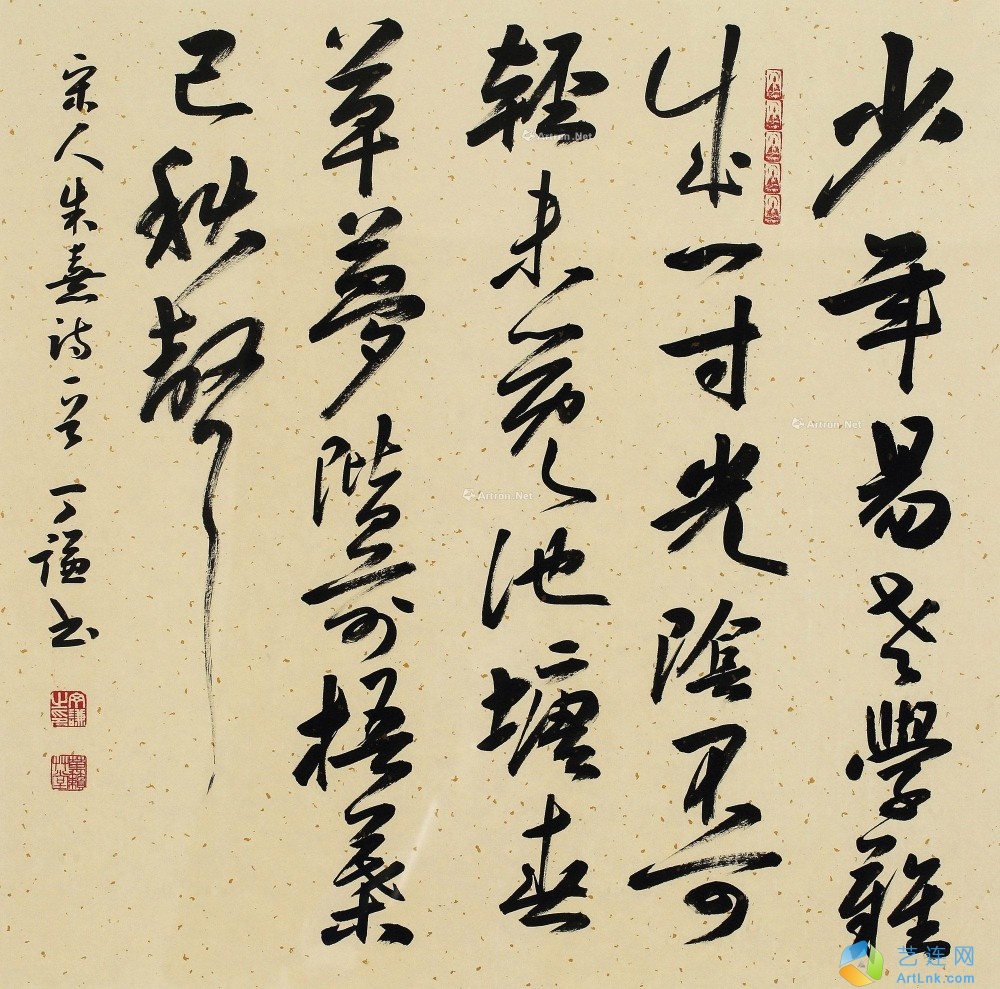 少年易老學難
成一寸光陰不可
輕未覺池塘春
草夢階前梧葉
已秋聲
宋人朱熹詩一首 丁謙书
Artron.Net
Artron.Net
Artron.Net
艺连网
ArtLnk.com